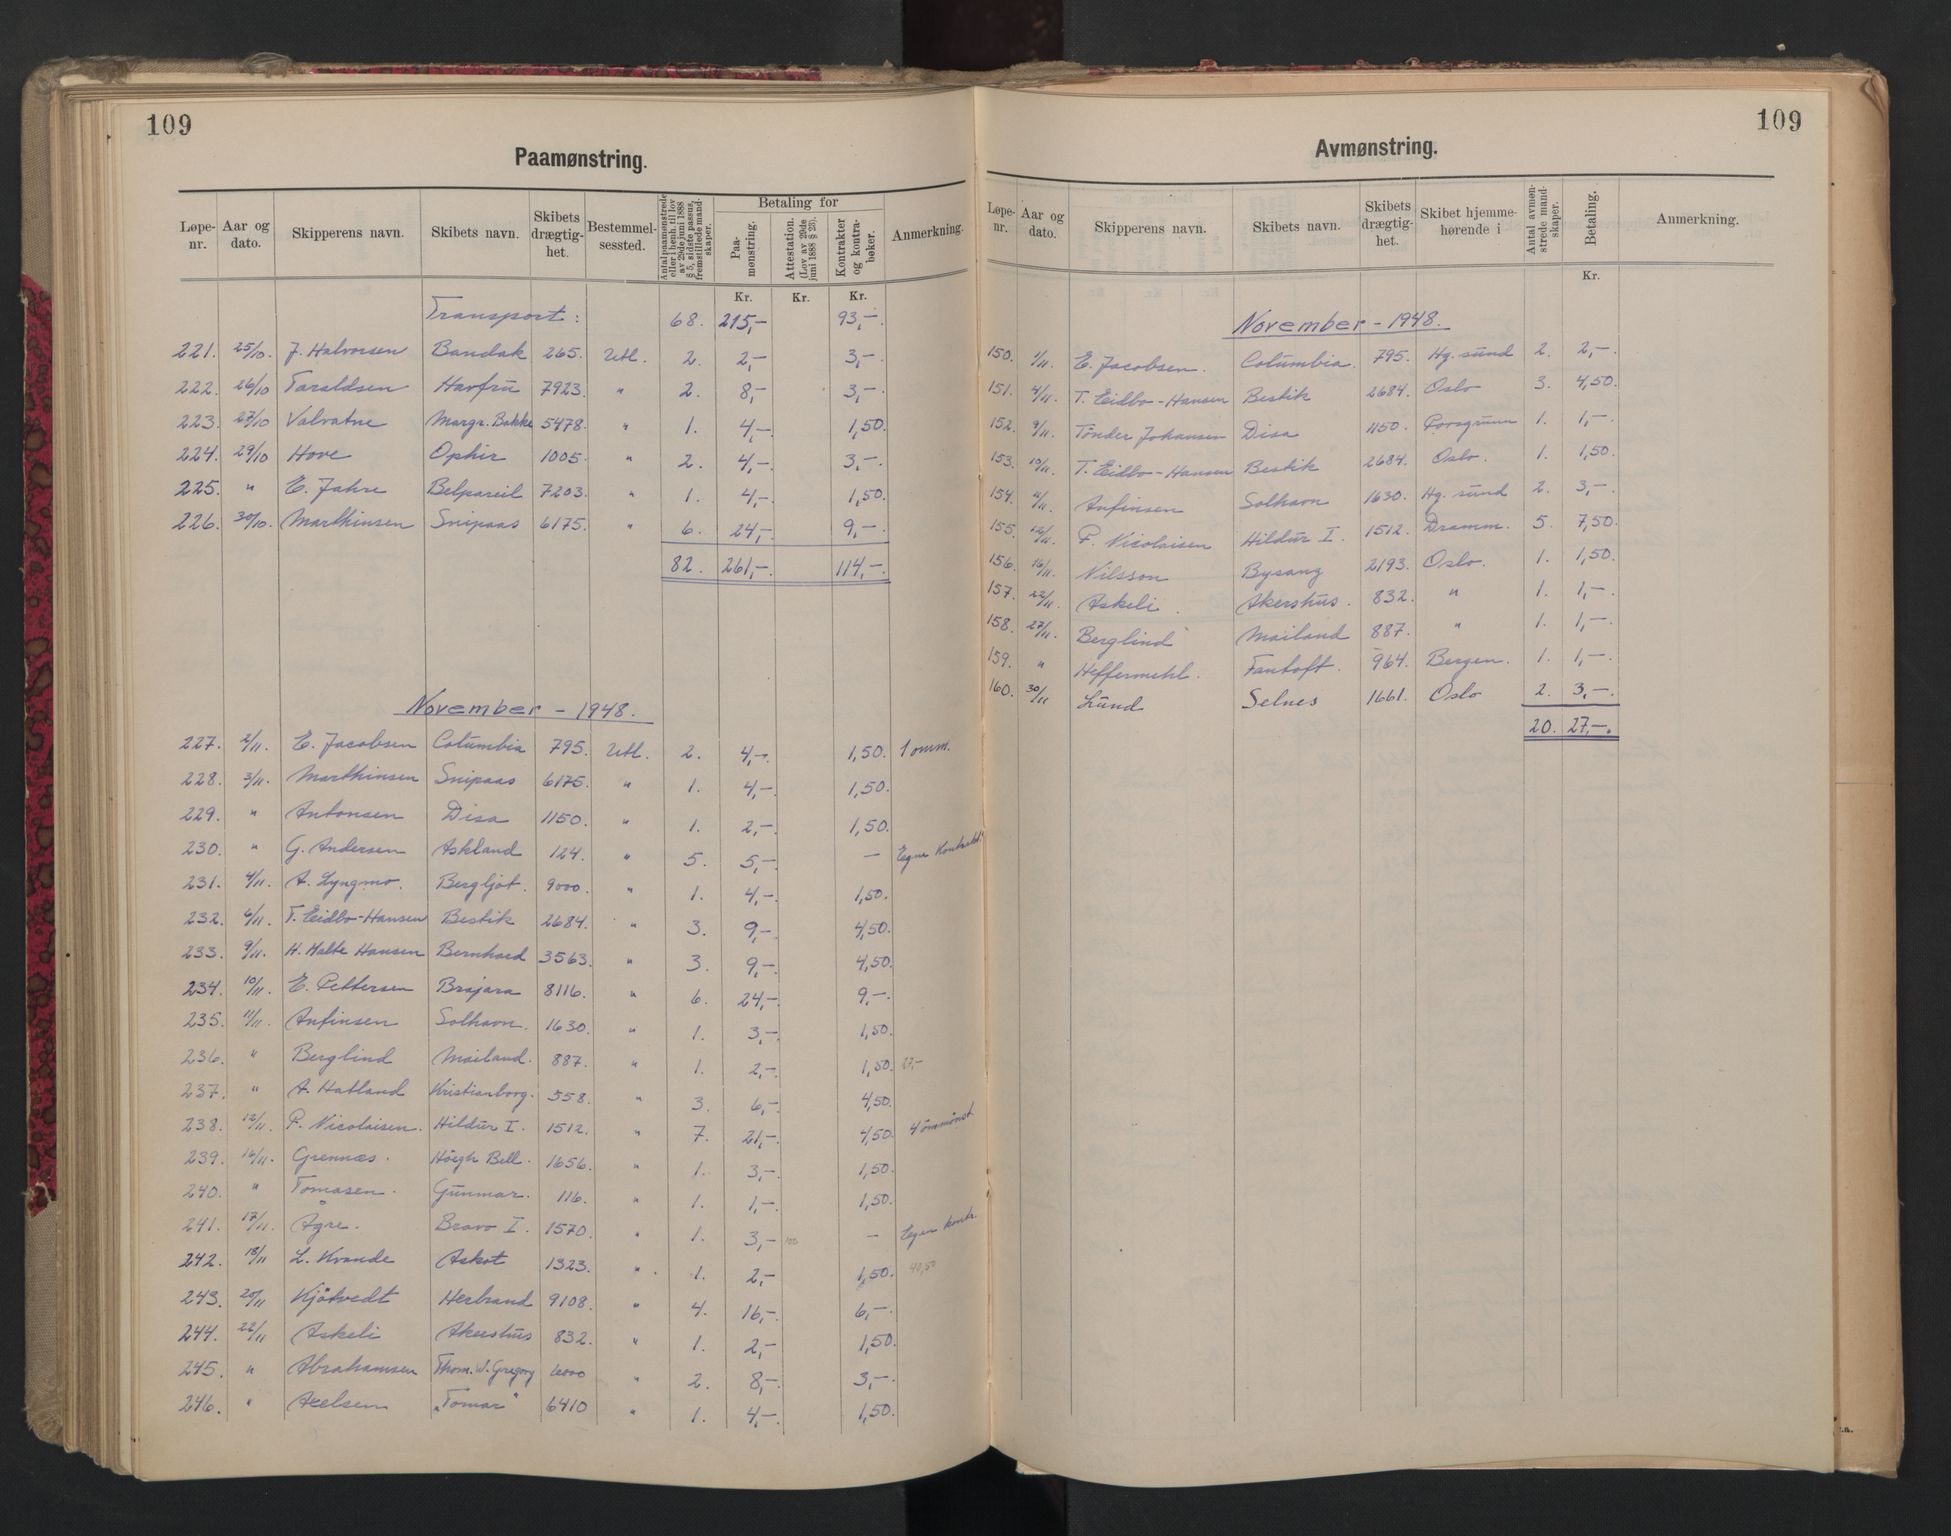 109
Paamønstring.
Løpe-nr. Aar og dato. Skipperens navn. Skibets navn. Skibets drægtig-het. Bestemmel-sessted. Antal paamønstrede eller i henh. til lov av 29de juni 1888 § 5, sidste passus, fremstillede mand-skaper. Betaling for Paa-mønstring. Attestation. (Lov av 29de juni 1888 § 23). Kontrakter og kontra-bøker. Anmerkning.
Kr. Kr. Kr.
Transport: 68. 215,- 93,-.
221. 25/10. J. Halvorsen Bandak 265. Utl. 2. 2,- 3,-.
222. 26/10 Taraldsen Havfru 7923. " 2. 8,- 3,-.
223. 27/10 Valvatne Margr. Bakke 5478. " 1. 4,-. 1,50.
224. 29/10 Hove Ophir 1005. " 2. 4,-. 3,-.
225. " E. Jahre Belpareil 7203. " 1. 4,-. 1,50.
226. 30/10. Marthinsen Snipaas 6175. " 6. 24,-. 9,-.
82. 261,-. 114,-.
November - 1948.
227. 2/11. E. Jacobsen Columbia 795. Utl. 2. 4,-. 1,50. 1 omm.
228. 3/11. Marthinsen Snipaas 6175. " 1. 4,-. 1,50.
229. " Antonsen Disa 1150. " 1. 2,-. 1,50.
230. " G. Andersen Askland 124. " 5. 5,-. — Egne Kontrakt.
231. 4/11. A. Lyngmo. Bergljot. 9000. " 1. 4,-. 1,50.
232. 6/11. T. Eidbo-Hansen Bestik 2684. " 3. 9,-. 4,50.
233. 9/11. H. Malte Hansen Bernhard 3563. " 3. 9,-. 4,50.
234. 10/11. E. Pettersen Brajara 8116. " 6. 24,-. 9,-.
235. 11/11. Anfinsen Solhavn. 1630. " 1. 3,-. 1,50.
236. " Berglind Mailand. 887. " 1. 2,-. 1,50. 27,-
237. " A. Hatland Kristianborg. 558. " 3. 6,-. 4,50.
238. 12/11. P. Nicolaisen. Hildur I. 1512. " 7. 21,-. 4,50. 4 ommønst.
239. 16/11. Grennæs. Høegh Bell. 1656. " 1. 3,-. 1,50.
240. " Tomasen. Gunmar. 116. " 1. 1,-. 1,50.
241. 17/11. Ågre. Bravo I. 1570. " 1. 3,- 100 — Egen kontr.
242. 18/11 L. Kvande Askot 1323. " 1. 2,- 1,50. 40,50
243. 20/11 Kjøtvedt Herbrand 9108. " 4. 16,-. 6,-.
244. 22/11 Askeli Akershus 832. " 1. 2,- 1,50.
245. " Abrahamsen Thom. W. Gregory 6000 " 2. 8,-. 3,-.
246. " Axelsen "Tomar" 6410 " 1. 4,-. 1,50.
109
Avmønstring.
Løpe-nr. Aar og dato. Skipperens navn. Skibets navn. Skibets drægtig-het. Skibet hjemme-hørende i Antal avmøn-strede mand-skaper. Betaling. Anmerkning.
Kr.
November - 1948.
150. 1/11 E. Jacobsen. Columbia. 795. Hg. sund 2. 2,-.
151. 4/11. T. Eidbo-Hansen Bestik 2684. Oslo 3. 4,50.
152. 9/11. Tønder Johansen Disa 1150. Porsgrunn 1. 1,-.
153. 10/11. T. Eidbo-Hansen Bestik 2684. Oslo. 1. 1,50.
154. 11/11. Anfinsen Solhavn 1630. Hg. sund 2. 3,-.
155. 12/11. P. Nicolaisen Hildur I. 1512. Dramm. 5. 7,50.
156. 16/11. Nilsson Bysanz 2193. Oslo. 1. 1,50.
157. 22/11. Askeli. Akershus. 832. " 1. 1,-.
158. 27/11. Berglind Mailand 887. " 1. 1,-.
159. " Heffermehl. Fantoft. 964. Bergen. 1. 1,-.
160. 30/11 Lund Selnes 1661. Oslo 2. 3,-.
20. 27,-.